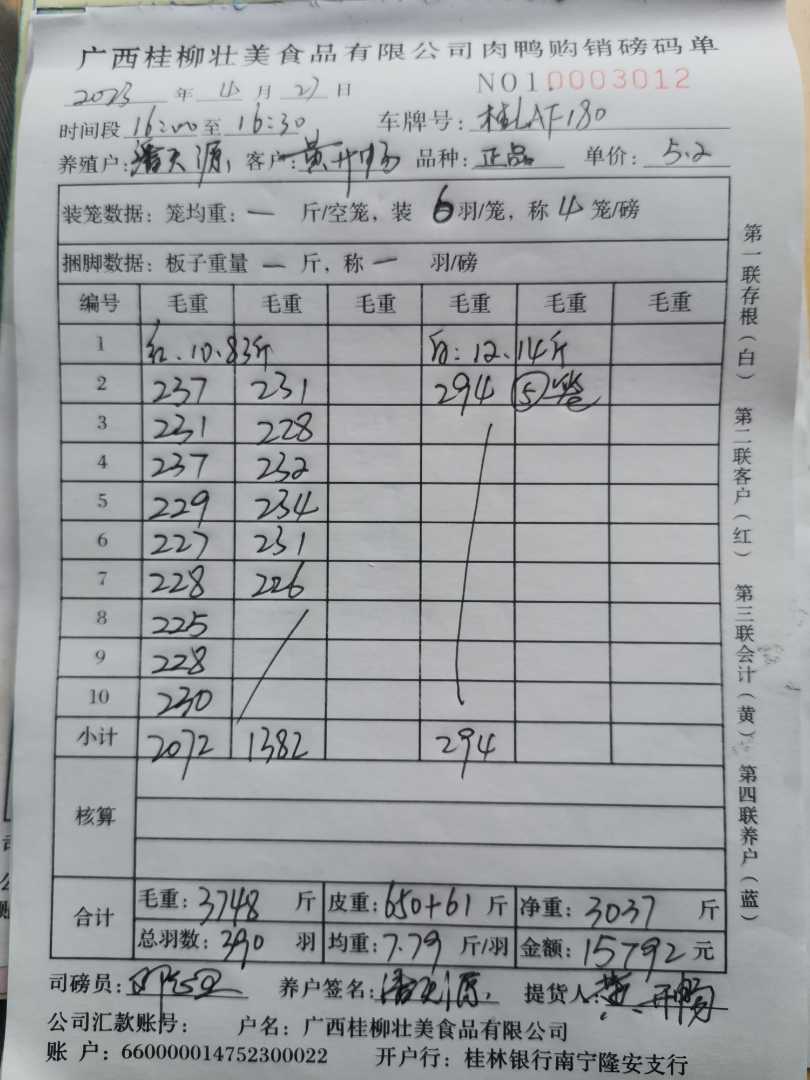 广西桂柳壮美食品有限公司肉鸭购销磅码单
2023 年 4 月 27 日 NO1.0003012
时间段 16:00 至 16:30 车牌号: 桂LAF180
养殖户: 潘天源, 客户: 黄开畅 品种: 正品 单价: 5.2
装笼数据: 笼均重: 一 斤/空笼, 装 6 羽/笼, 称 4 笼/磅
捆脚数据: 板子重量 一 斤, 称 一 羽/磅
编号 毛重 毛重 毛重 毛重 毛重 毛重
1 红.10.83斤 白:12.14斤
2 237 231 294 ⑤笼
3 231 228
4 237 232
5 229 234
6 227 231
7 228 226
8 225
9 228
10 230
小计 2072 1382 294
核算
合计 毛重: 3748 斤 皮重: 650+61 斤 净重: 3037 斤
总羽数: 390 羽 均重: 7.79 斤/羽 金额: 15792 元
司磅员: 养户签名: 潘天源, 提货人: 黄开畅
公司汇款账号: 户名: 广西桂柳壮美食品有限公司
账 户: 660000014752300022 开户行: 桂林银行南宁隆安支行
第一联存根(白) 第二联客户(红) 第三联会计(黄) 第四联养户(蓝)